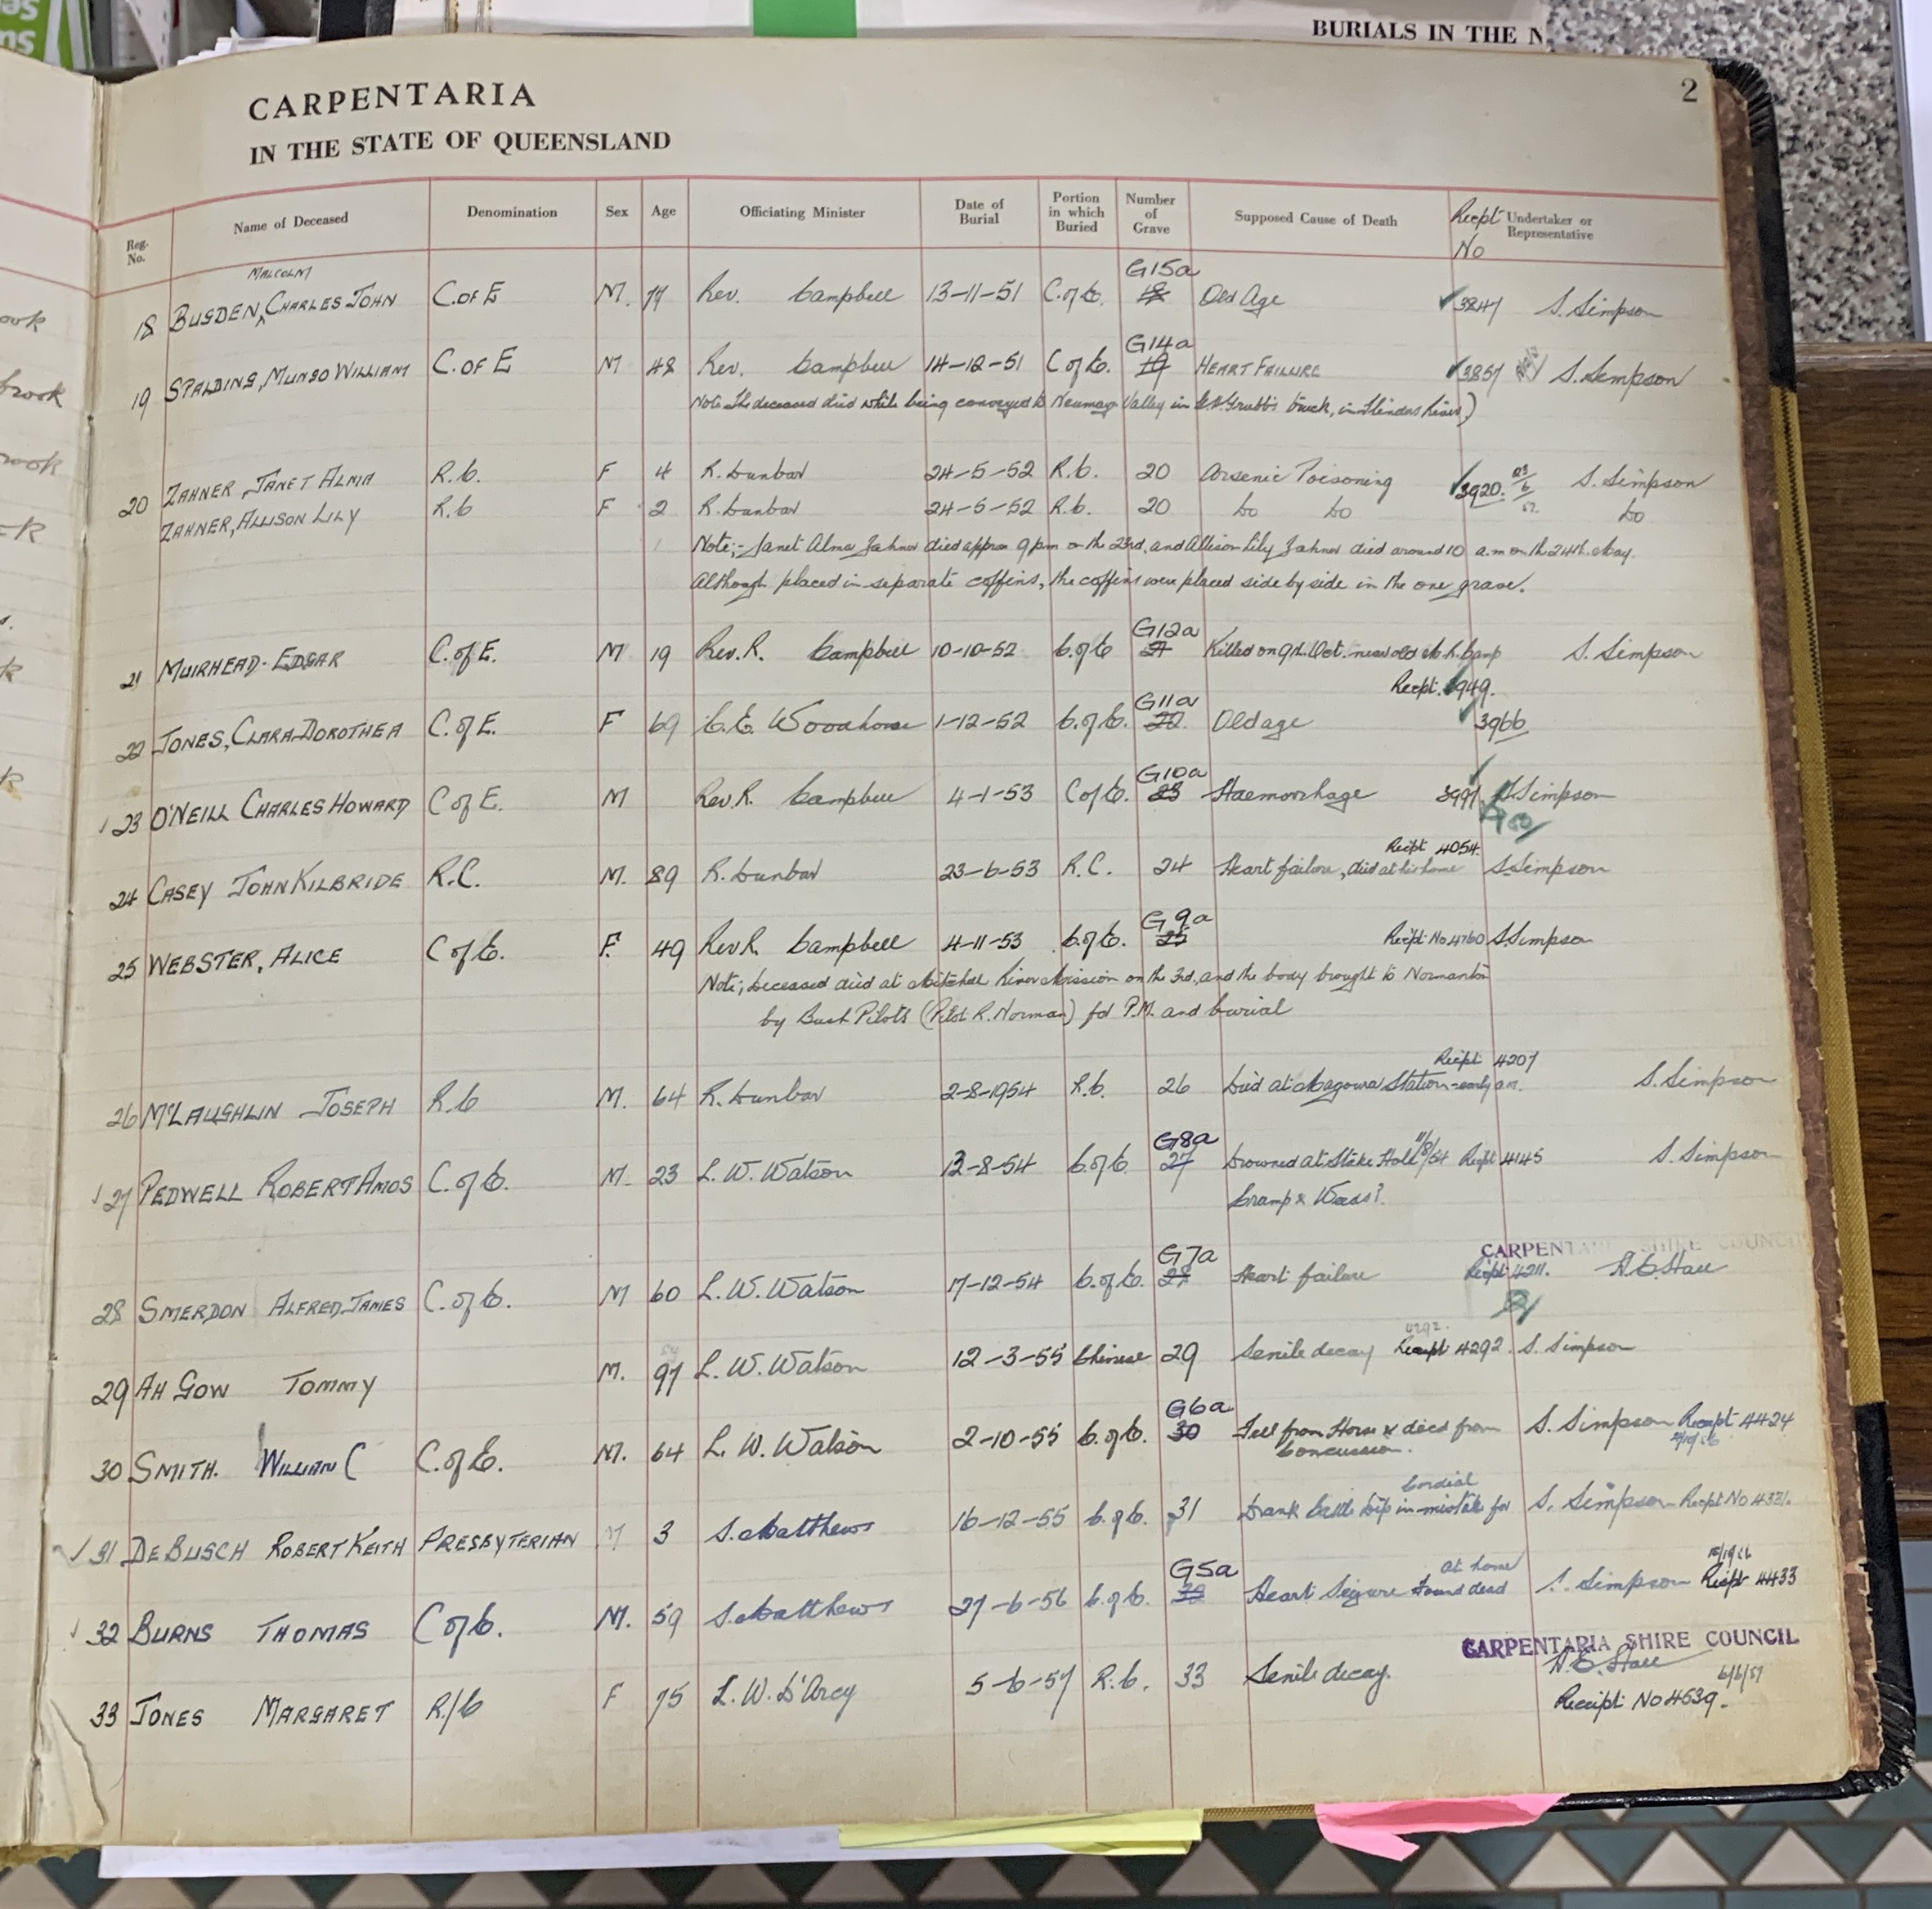 BURIALS IN THE N
2
CARPENTARIA
IN THE STATE OF QUEENSLAND
Reg. No. Name of Deceased Denomination Sex Age Officiating Minister Date of Burial Portion in which Buried Number of Grave Supposed Cause of Death Recpt No Undertaker or Representative
MALCOLM G15a
18 BUSDEN, CHARLES JOHN C. OF E M. 77 Rev. Campbell 13-11-51 C. of E. 18 Old Age 3847 S. Simpson
G14a
19 SPALDING, MUNGO WILLIAM C. OF E M 48 Rev. Campbell 14-12-51 C of E. 19 HEART FAILURE 3857 S. Simpson
Note The deceased died while being conveyed to Valley in Grubb's truck, in Flinders River)
20 ZAHNER, JANET ALMA R.C. F 4 R. Dunbar 24-5-52 R.C. 20 Arsenic Poisoning 3920 S. Simpson
ZAHNER, ALLISON LILY R.C F 2 R. Dunbar 24-5-52 R.C. 20 Do Do Do
Note;- Janet Alma Zahner died approx 9 pm on the 23rd, and Allison Lily Zahner died around 10 a.m on the 24th. May.
Although placed in separate coffins, the coffins were placed side by side in the one grave.
G12a
21 MUIRHEAD- EDGAR C. of E. M 19 Rev. R. Campbell 10-10-52 C. of E 21 Killed on 9th. Oct. near old Camp S. Simpson
Recpt. 3949.
G11a
22 JONES, CLARA DOROTHEA C. of E. F 69 C.E. Woodhouse 1-12-52 C. of E. 22 Old age 3966
G10a
23 O'NEILL CHARLES HOWARD C of E. M Rev. R. Campbell 4-1-53 C of E. 23 Haemorrhage 3997 S. Simpson
Recpt 4054.
24 CASEY JOHN KILBRIDE R.C. M. 89 R. Dunbar 23-6-53 R.C. 24 Heart failure, died at his home S. Simpson
G9a
25 WEBSTER, ALICE C of E. F. 49 Rev R. Campbell 4-11-53 C. of E. 25 Recipt No 4760 S Simpson
Note; Deceased died at Mitchell River Mission on the 3rd, and the body brought to Normanton
by Bush Pilots (Pilot R. Norman) for P.M. and burial
Recipt 4207
26 McLAUGHLIN JOSEPH R.C M. 64 R. Dunbar 2-8-1954 R.C. 26 Died at Magowra Station - early a.m. S. Simpson
G8a 11/8/54
27 PEDWELL ROBERT AMOS C. of E. M. 23 L. W. Watson 12-8-54 C. of E. 27 Drowned at Stake Hole Recpt 4145 S. Simpson
Cramp & Weeds?
G7a CARPENTARIA SHIRE COUNCIL
28 SMERDON ALFRED JAMES C. of E. M 60 L. W. Watson 17-12-54 C. of E. 28 Heart failure Recipt 4211.
4292.
29 AH GOW TOMMY M. 97 L. W. Watson 12-3-55 Chinese 29 Senile decay Recept 4292. S. Simpson
G6a
30 SMITH. WILLIAM C C. of E. M. 64 L. W. Watson 2-10-55 C. of E. 30 Fell from Horse & died from S. Simpson Recept 4424
Concussion.
Cordial
31 DE BUSCH ROBERT KEITH PRESBYTERIAN M 3 S. Matthews 16-12-55 C. of E. 31 Drank Cattle Dip in mistake for S. Simpson Recpt No 4321.
G5a at home
32 BURNS THOMAS C of E. M. 59 S. Matthews 27-6-56 C. of E. 32 Heart Seizure Found dead S. Simpson Recipt 4433
CARPENTARIA SHIRE COUNCIL
33 JONES MARGARET R/C F 75 L. W. D'Arcy 5-6-57 R.C. 33 Senile decay. 6/6/57
Receipt No 4539.